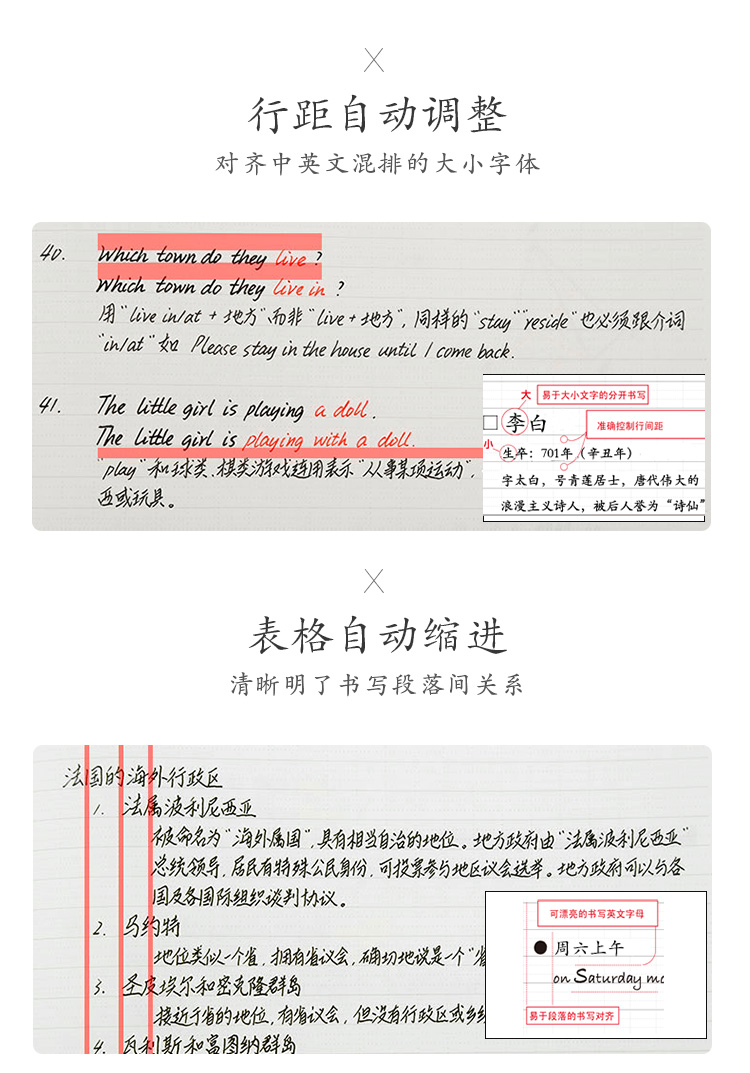 行距自动调整
对齐中英文混排的大小字体
40. Which town do they live ?
Which town do they live in ?
用“live in/at + 地方”而非“live+地方”, 同样的“stay”“reside”也必须跟介词
“in/at”如 Please stay in the house until I come back.
41. The little girl is playing a doll.
The little girl is playing with a doll.
“play”和球类、棋类游戏连用表示“从事某项运动”,
西或玩具。
大 易于大小文字的分开书写
李白
准确控制行间距
小
生卒：701年（辛丑年）
字太白，号青莲居士，唐代伟大的
浪漫主义诗人，被后人誉为“诗仙”
表格自动缩进
清晰明了书写段落间关系
法国的海外行政区
1. 法属波利尼西亚
被命名为“海外属国”,具有相当自治的地位。地方政府由“法属波利尼西亚”
总统领导,居民有特殊公民身份,可投票参与地区议会选举。地方政府可以与各
国及各国际组织谈判协议。
2. 马约特
地位类似一个省,拥有省议会,确切地说是一个“省
3. 圣皮埃尔和密克隆群岛
接近于省的地位,有省议会,但没有行政区或乡镇
4. 瓦利斯和富图纳群岛
可漂亮的书写英文字母
周六上午
on Saturday mo
易于段落的书写对齐